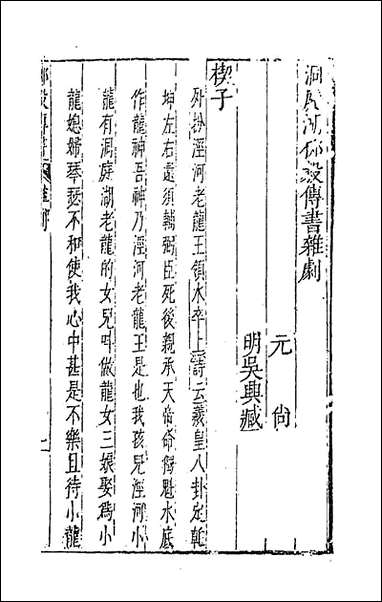 洞庭湖柳毅傳書雜劇
元　尚
明吳興臧
楔子
外扮涇河老龍王領水卒上詩云羲皇八卦定乾
坤左右還須輔弼臣死後親承天帝命獨魁水底
作龍神吾神乃涇河老龍王是也我孩兒涇河小
龍有洞庭湖老龍的女兒呌做龍女三娘娶爲小
龍媳婦琴瑟不和使我心中甚是不樂且待小龍
柳毅傳書 雜劇 一